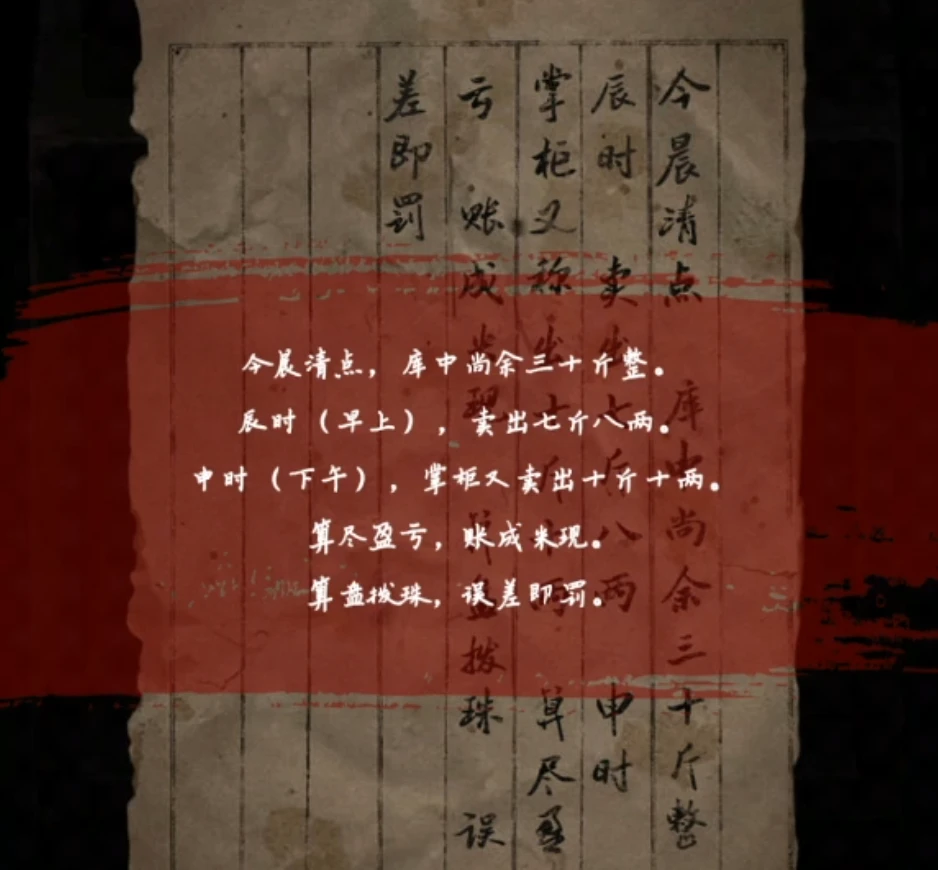 今晨清点，库中尚余三十斤整。
辰时（早上），卖出七斤八两。
申时（下午），掌柜又卖出十斤十两。
算尽盈亏，账成米现。
算盘拨珠，误差即罚。
今晨清点 库中尚余三十斤整
辰时 卖出七斤八两 申时
掌柜又称出十斤十两 算尽盈
亏 账成米现 算盘拨珠 误
差即罚